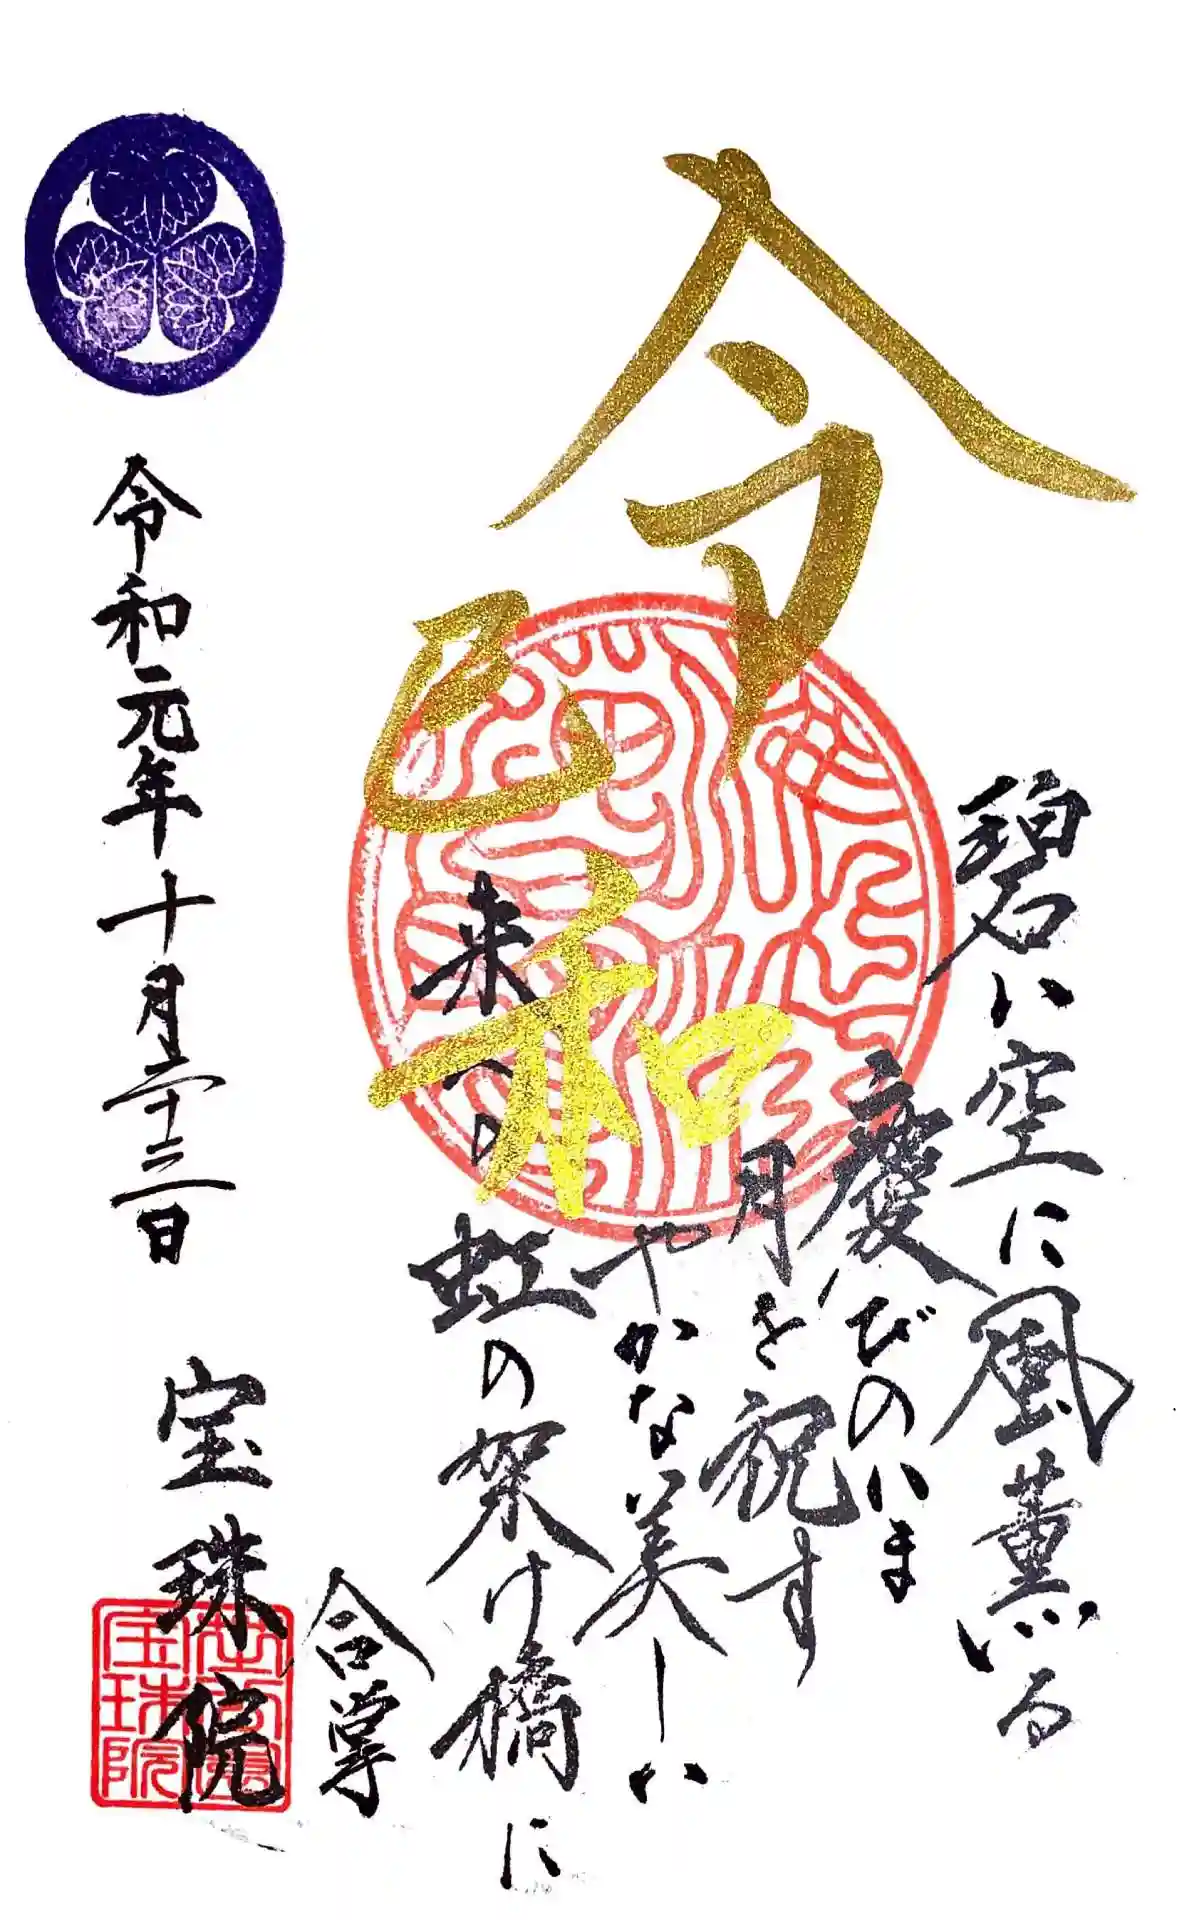 令
和
碧い空に風薫る
慶びのいま
月を祝す
やかな美しい
来への虹の架け橋に
合掌
令和元年十月二十二日 宝珠院
宝珠院